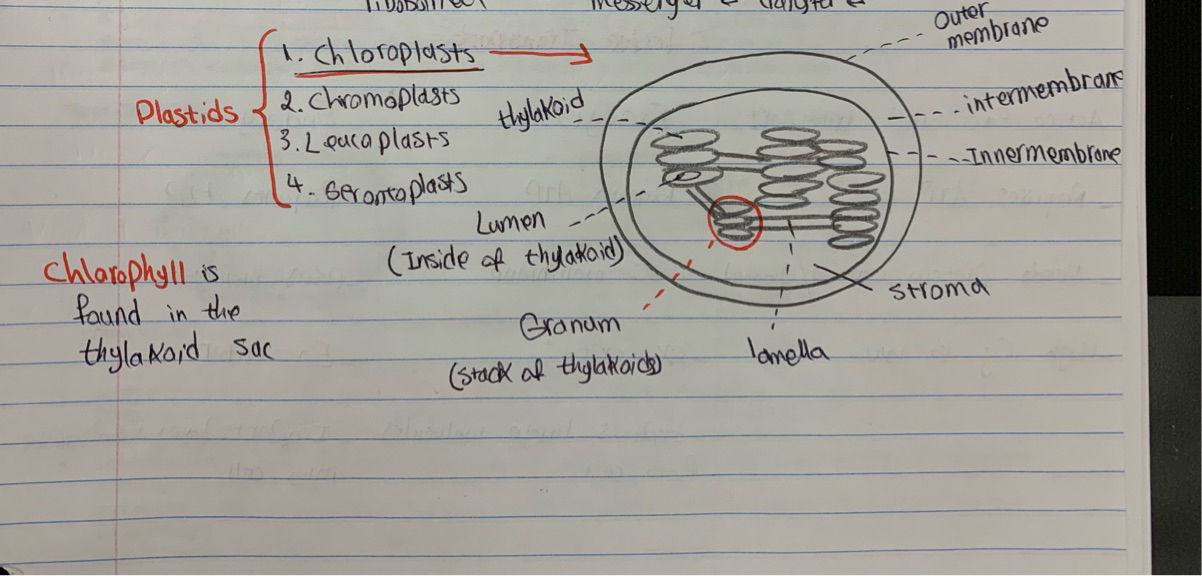 Plastids
1. Chloroplasts
2. Chromoplasts
3. Leucoplasts
4. Gerontoplasts
Chlorophyll is
found in the
thylakoid sac
thylakoid
Lumen
(Inside of thylakoid)
Granum
(stack of thylakoids)
lamella
stroma
Outer
membrane
intermembrane
Innermembrane